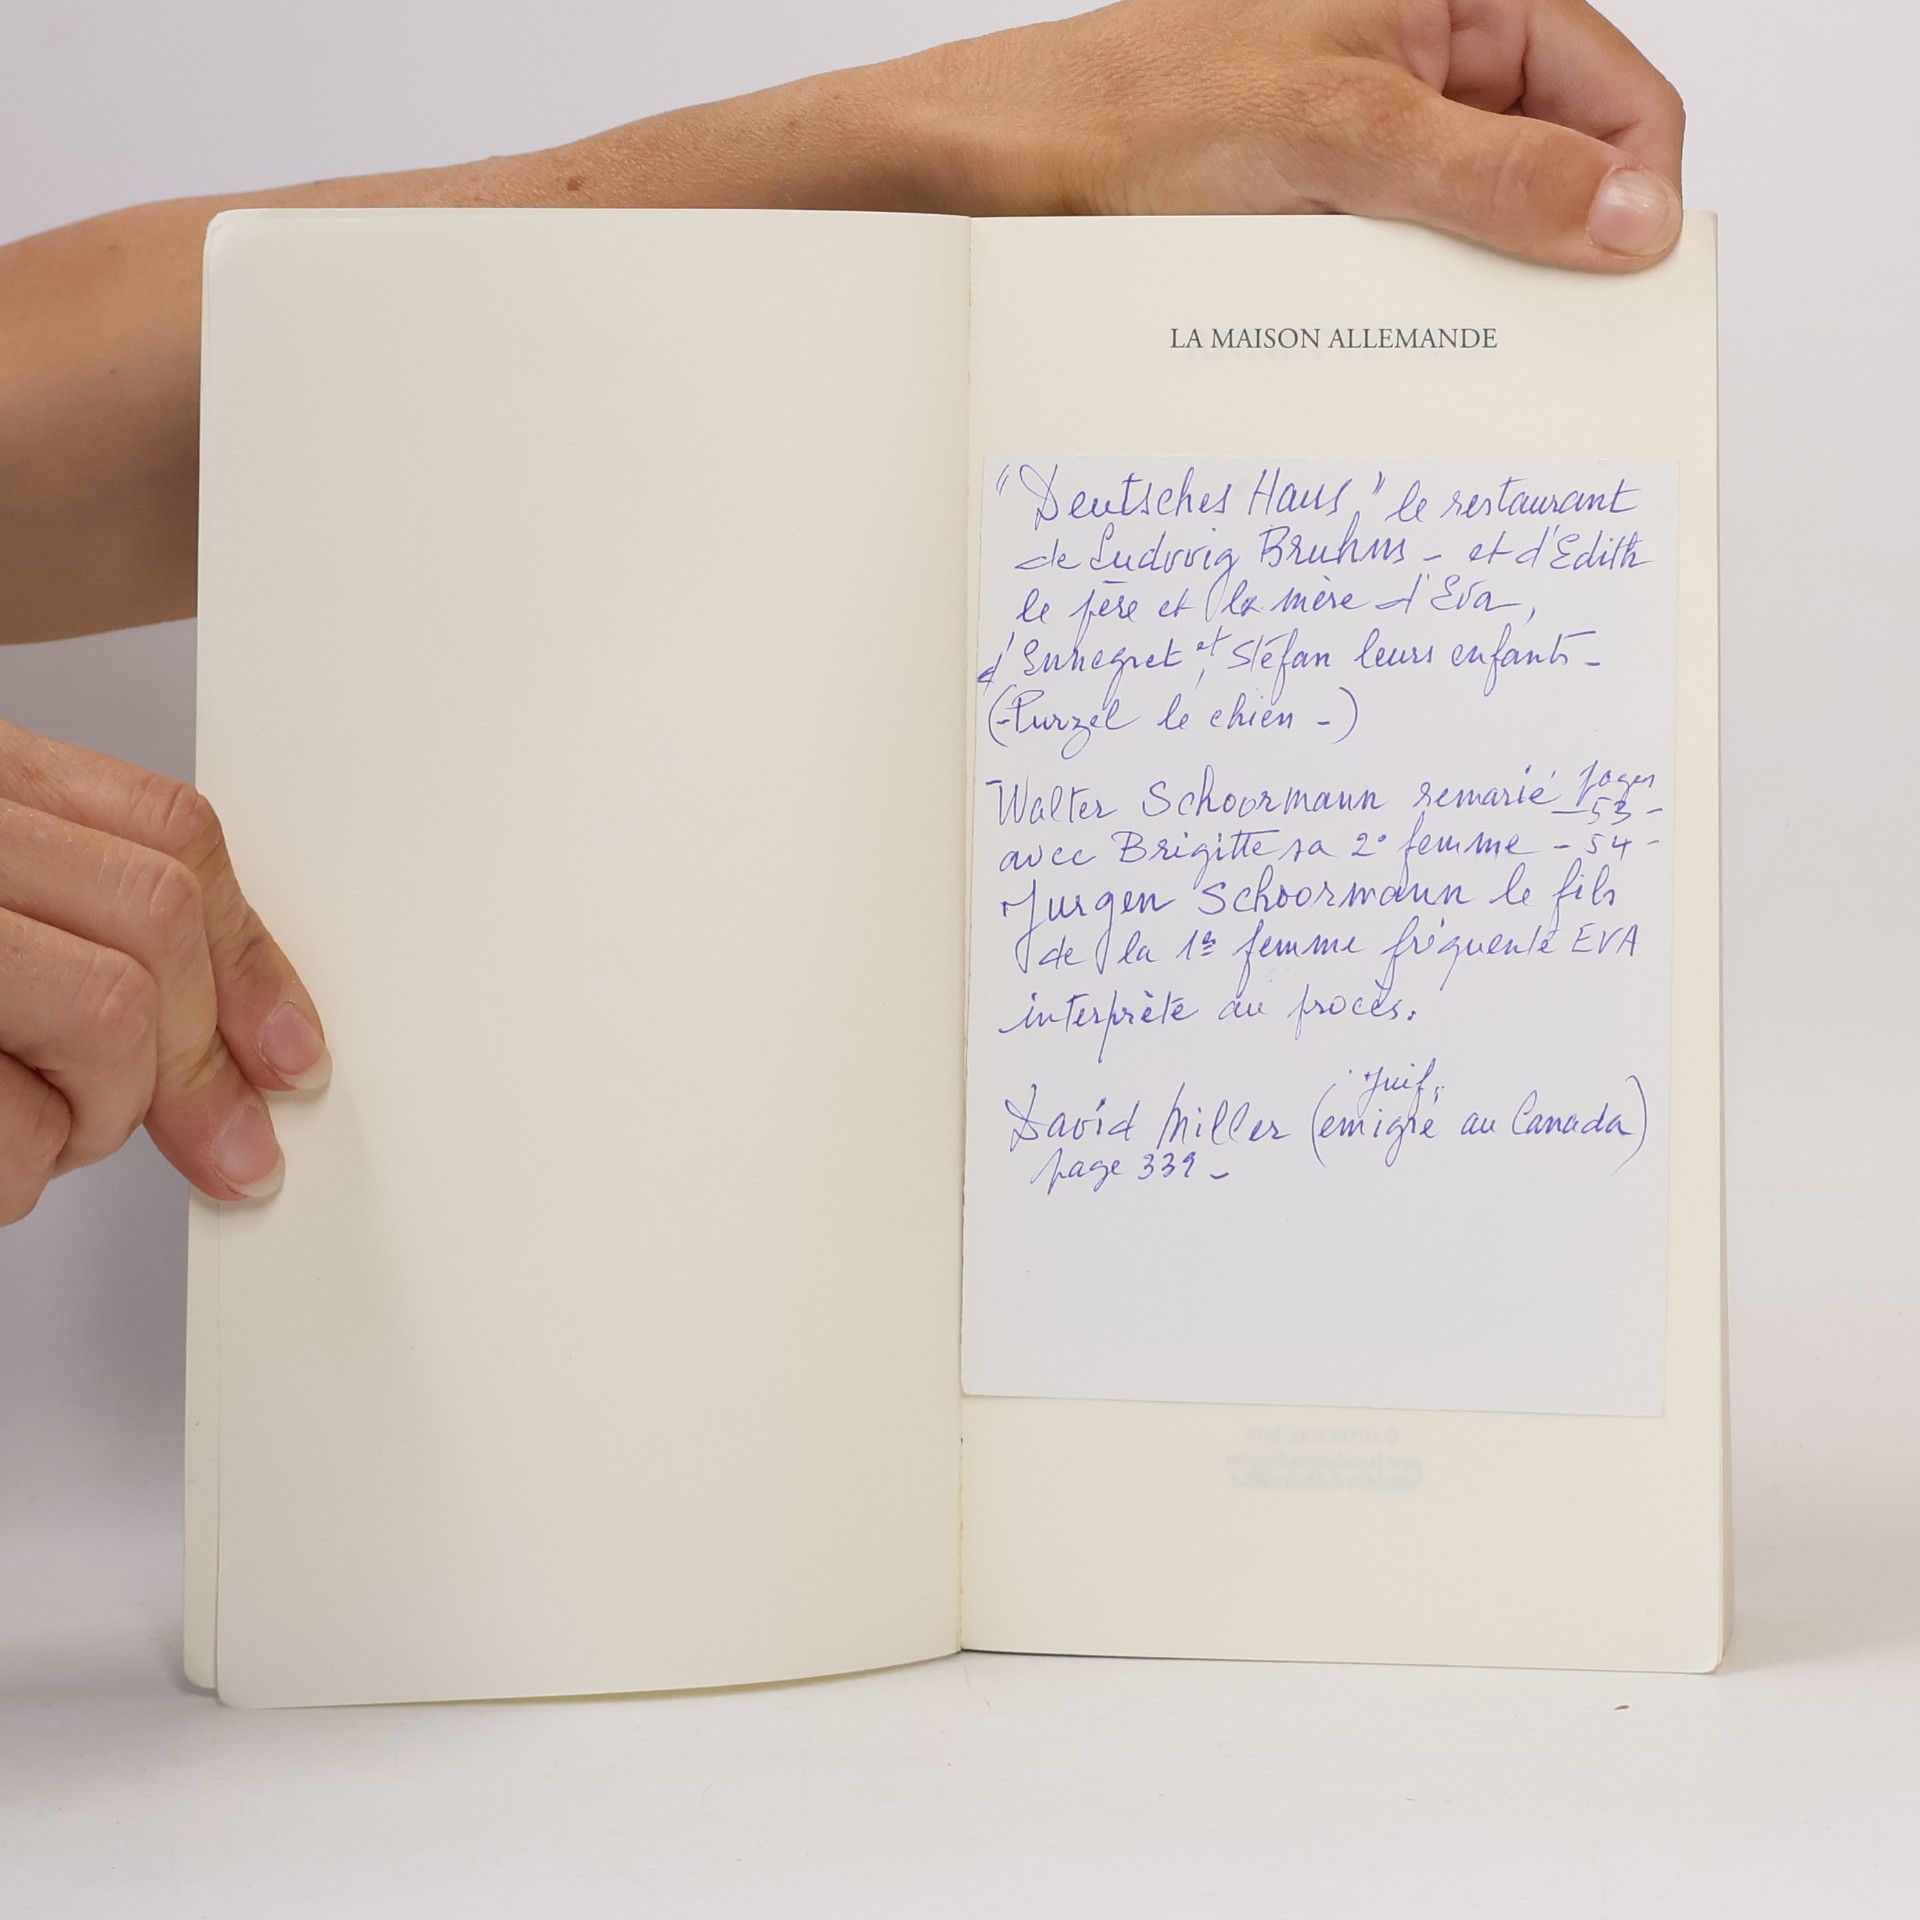 LA MAISON ALLEMANDE
"Deutsches Haus" le restaurant
de Ludwig Bruhns - et d'Edith
le père et la mère d'Eva,
d'Ennegret et Stéfan leurs enfants -
(-Purzel le chien -)
Walter Schoormann remarié pages - 53 -
avec Brigitte sa 2° femme - 54 -
Jurgen Schoormann le fils
de la 1re femme fréquente EVA
interprète au procès.
David Miller (Juif, emigré au Canada)
page 339 -